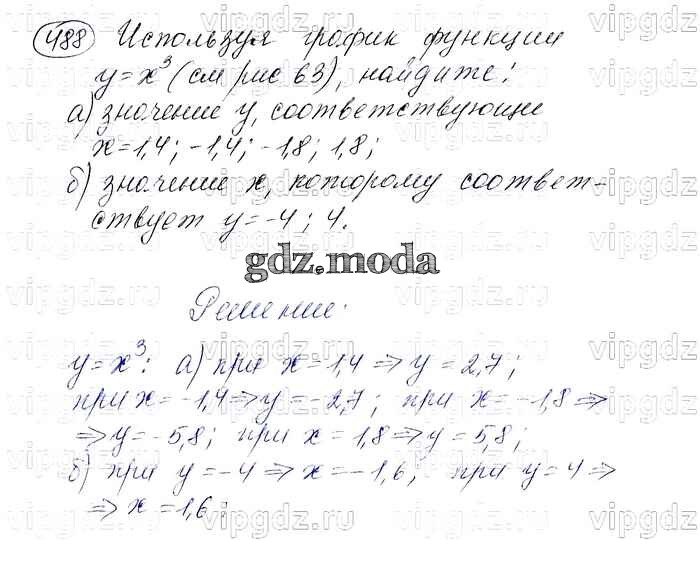 488 Используя график функции
y=x³ (см рис 63), найдите:
а) значение y, соответствующие
x=1,4; -1,4; -1,8; 1,8;
б) значение x, которому соответ-
ствует y=-4; 4.
gdz.moda
Решение:
y=x³: а) при x=1,4 ⇒ y=2,7;
при x=-1,4 ⇒ y=-2,7; при x=-1,8 ⇒
⇒ y=-5,8; при x=1,8 ⇒ y=5,8;
б) при y=-4 ⇒ x=-1,6; при y=4 ⇒
⇒ x=1,6;
vipgdz.ru